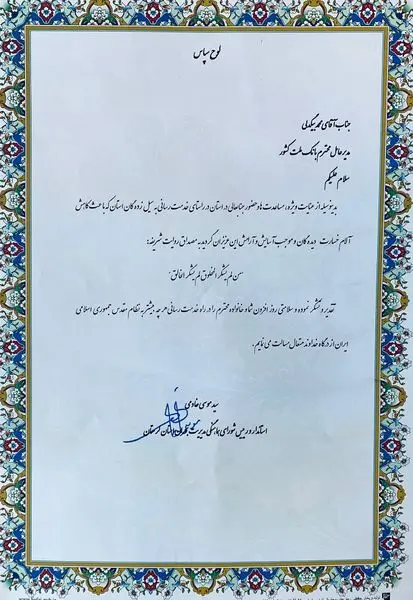 لوح سپاس
جناب آقای محمد بیگدلی
مدیرعامل محترم بانک ملت کشور
سلام علیکم
بدینوسیله از عنایت ویژه، مساعدت ها و حضور جنابعالی در استان در راستای خدمت رسانی به سیل زدگان استان که باعث کاهش
آلام خسارت دیدگان و موجب آسایش و آرامش این عزیزان گردید به مصداق روایت شریفه:
"من لم یشکر المخلوق لم یشکر الخالق"
تقدیر و تشکر نموده و سلامتی روز افزون شما و خانواده محترم را در راه خدمت رسانی هر چه بیشتر به نظام مقدس جمهوری اسلامی
ایران از درگاه خداوند متعال مسالت می نمایم.
سید موسی خادمی
استاندار و رییس شورای هماهنگی مدیریت بحران استان لرستان